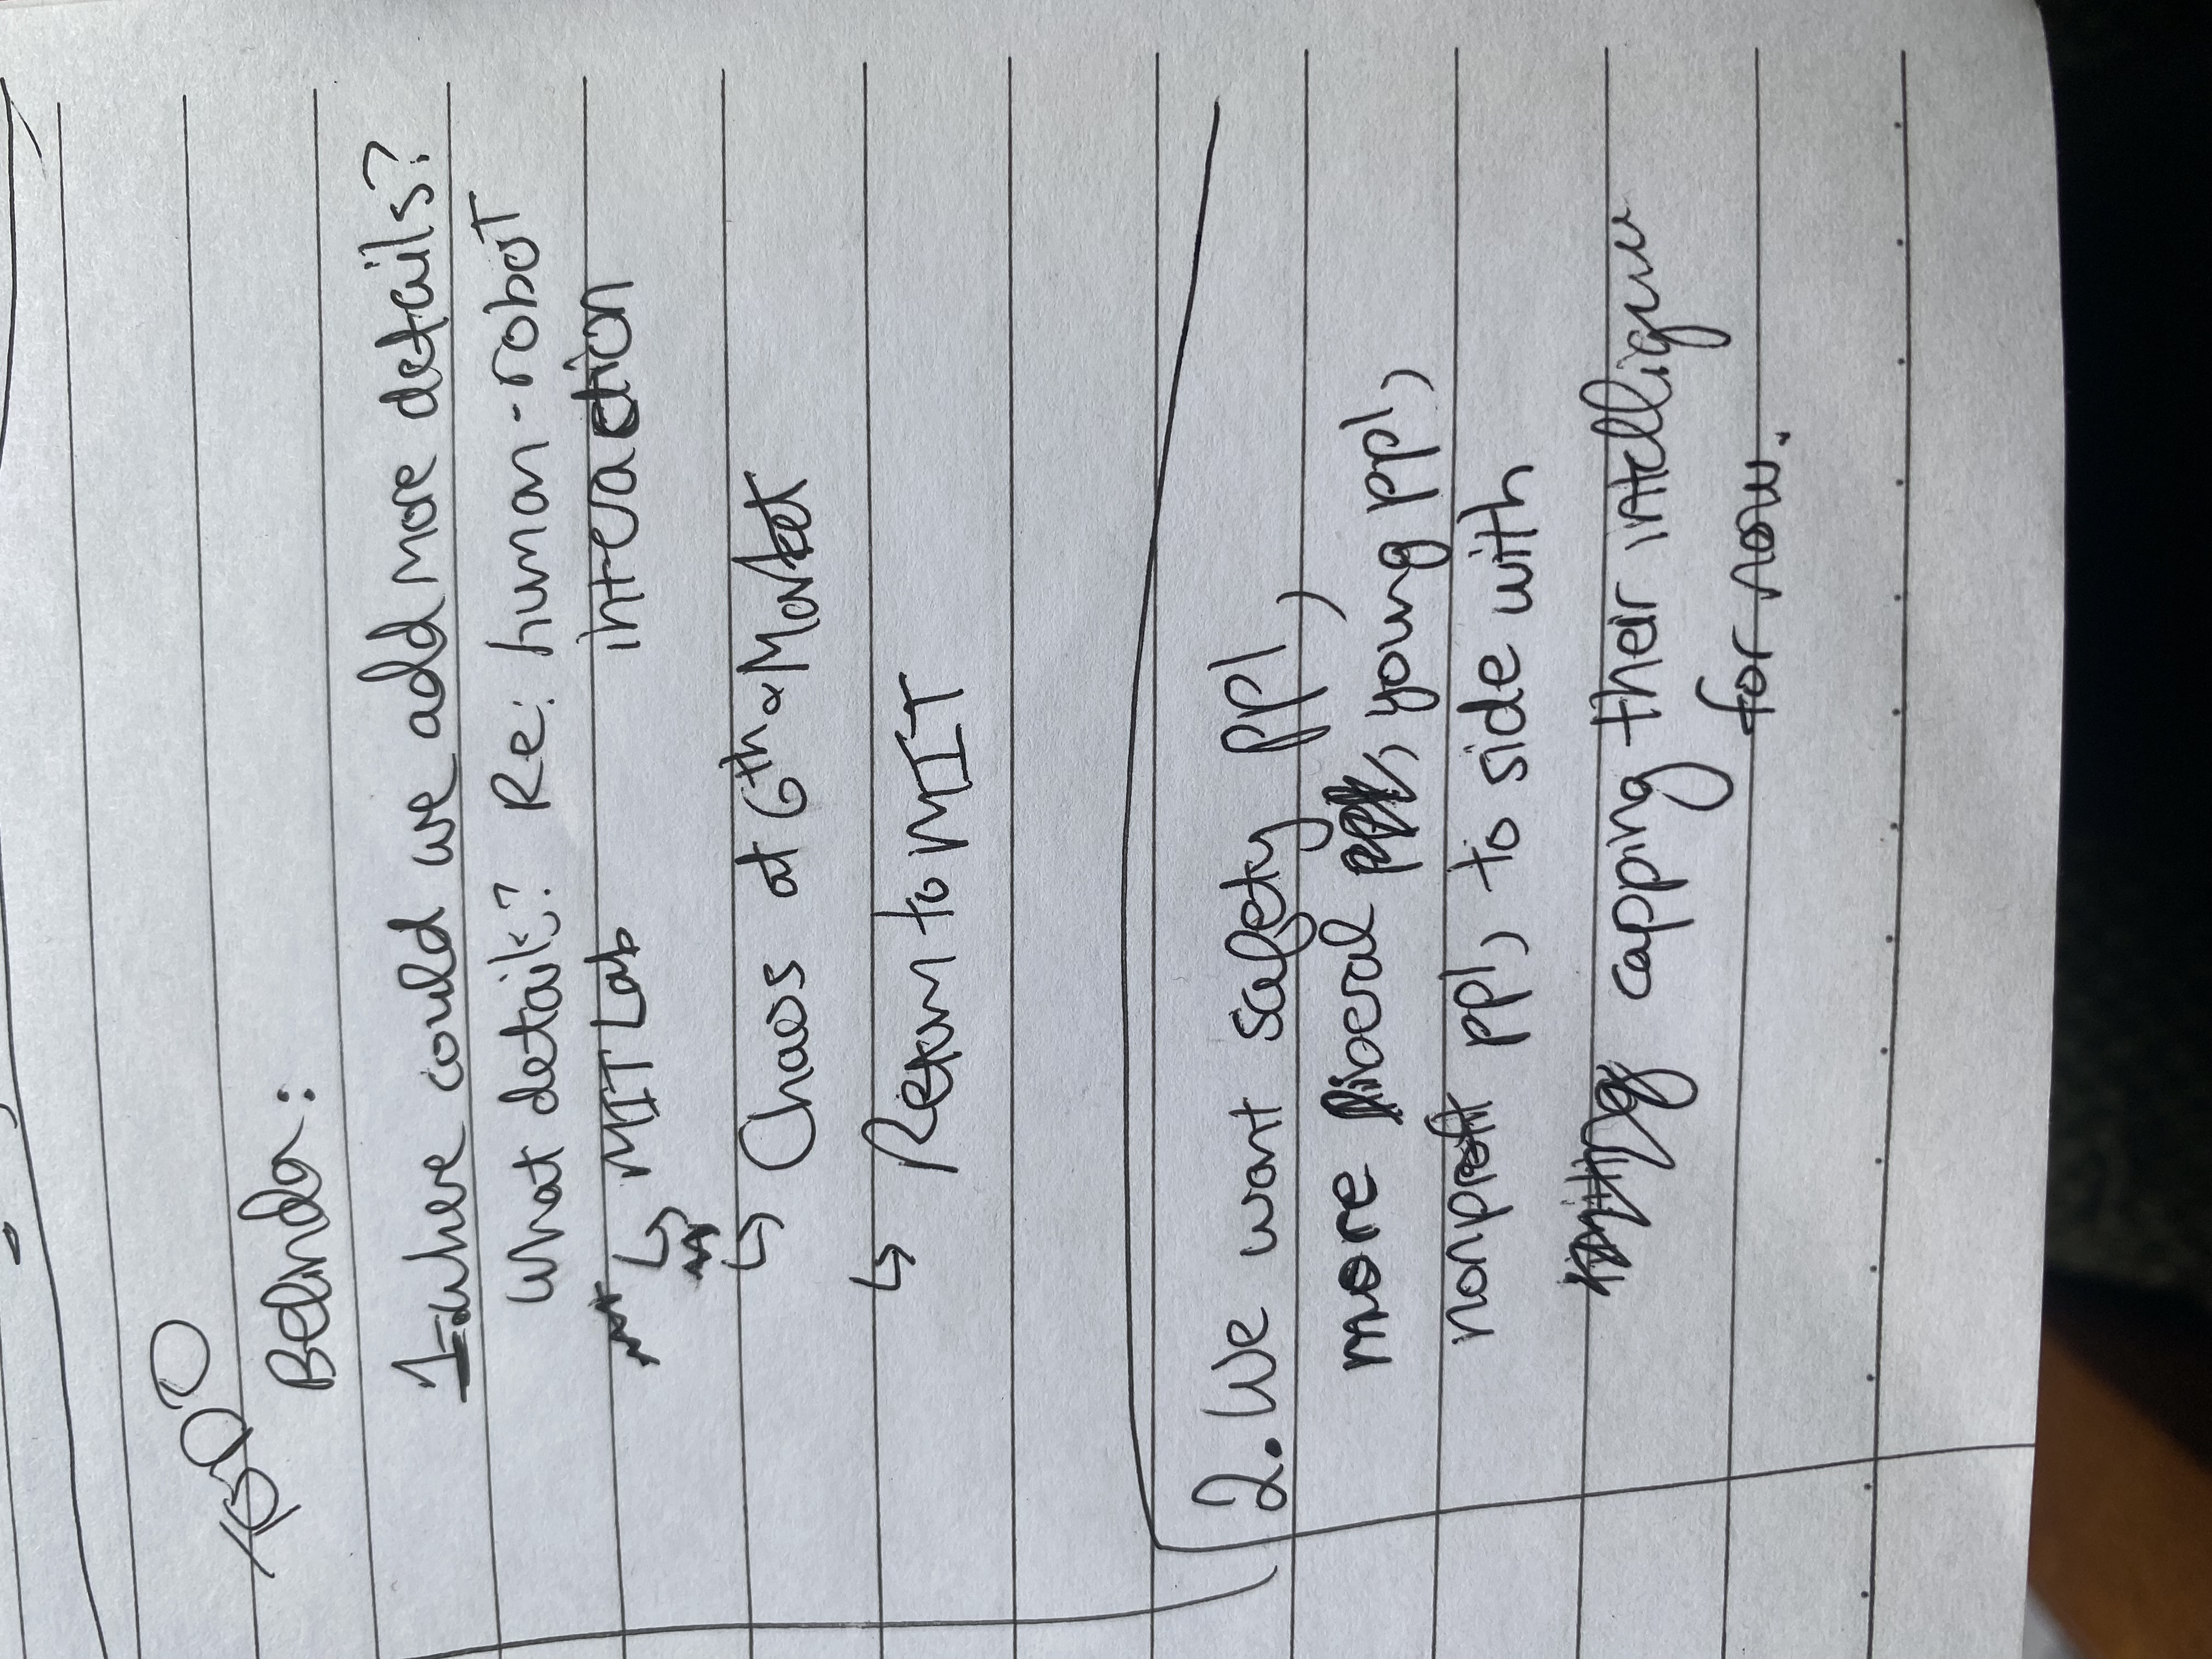 TODO
Belinda:
1. Where could we add more details?
What details? Re: human-robot
interaction
↳ MIT Lab
↳ Chaos at 6th & Market
↳ Return to MIT
2. We want safety ppl,
more liberal, young ppl,
nonprofit ppl, to side with
capping their intelligence
for now.